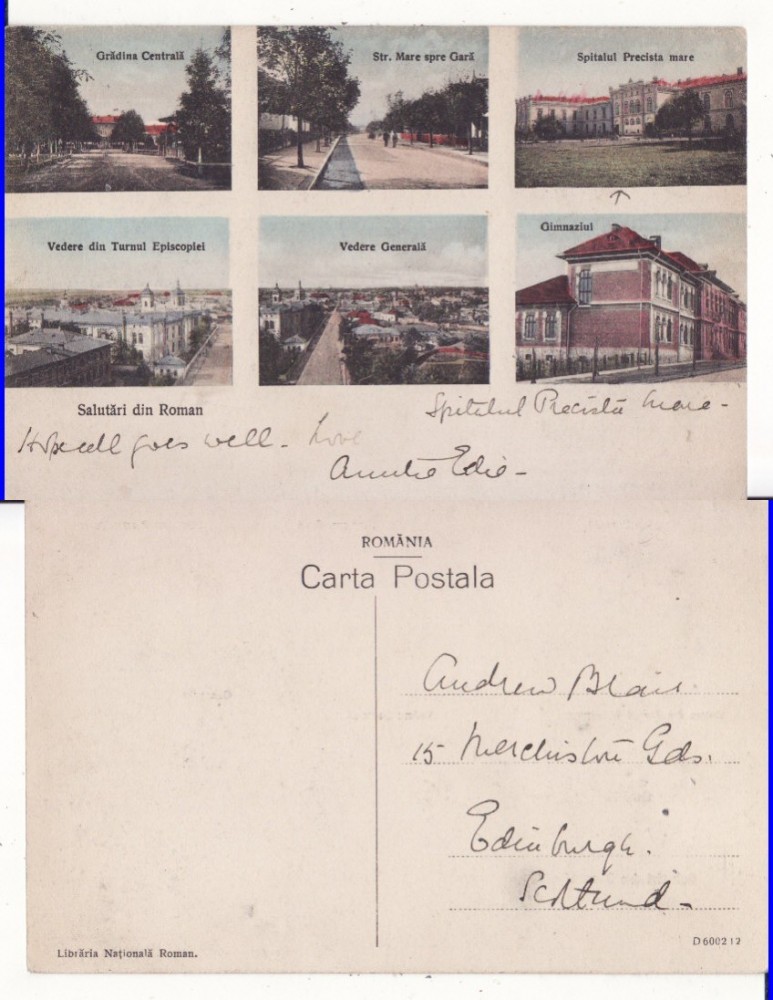 Grădina Centrală
Str. Mare spre Gară
Spitalul Precista mare
Vedere din Turnul Episcopiei
Vedere Generală
Gimnaziul
Salutări din Roman
Spitalul Precista mare -
Hope all goes well - Love
Auntie Edie -
ROMÂNIA
Carta Postala
Andrew Blair
15 Merchiston Gds.
Edinburgh.
Scotland -
Librăria Națională Roman.
D 600212